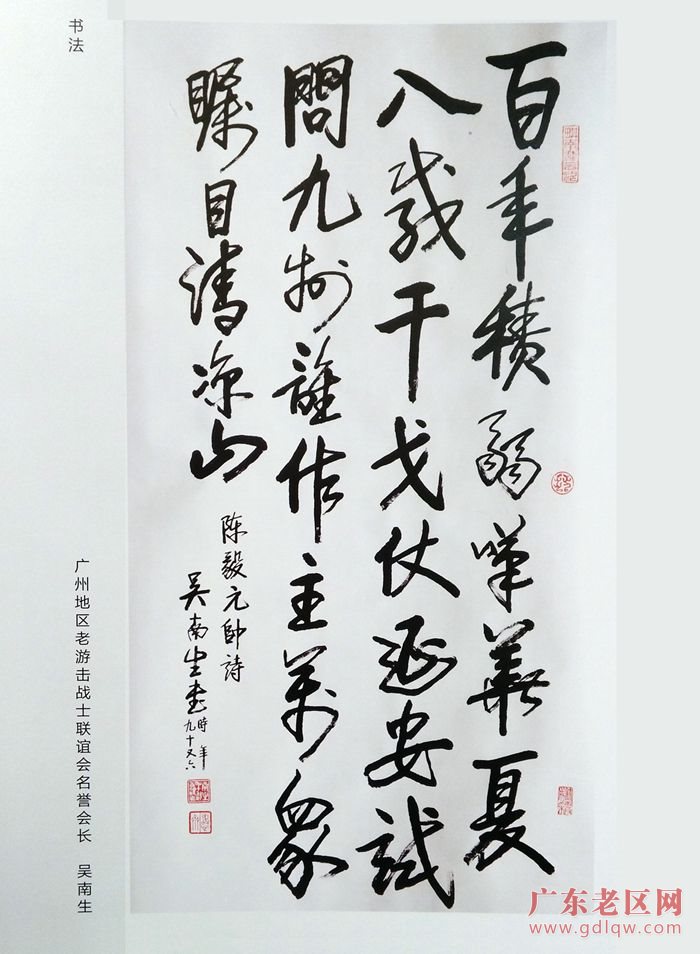 书法
百年積弱嘆華夏
八載干戈仗延安試
問九州誰作主萬眾
瞩目清凉山
陈毅元帥詩
吴南生书
時年
九十又六
广州地区老游击战士联谊会名誉会长 吴南生
广东老区网
www.gdlqw.com